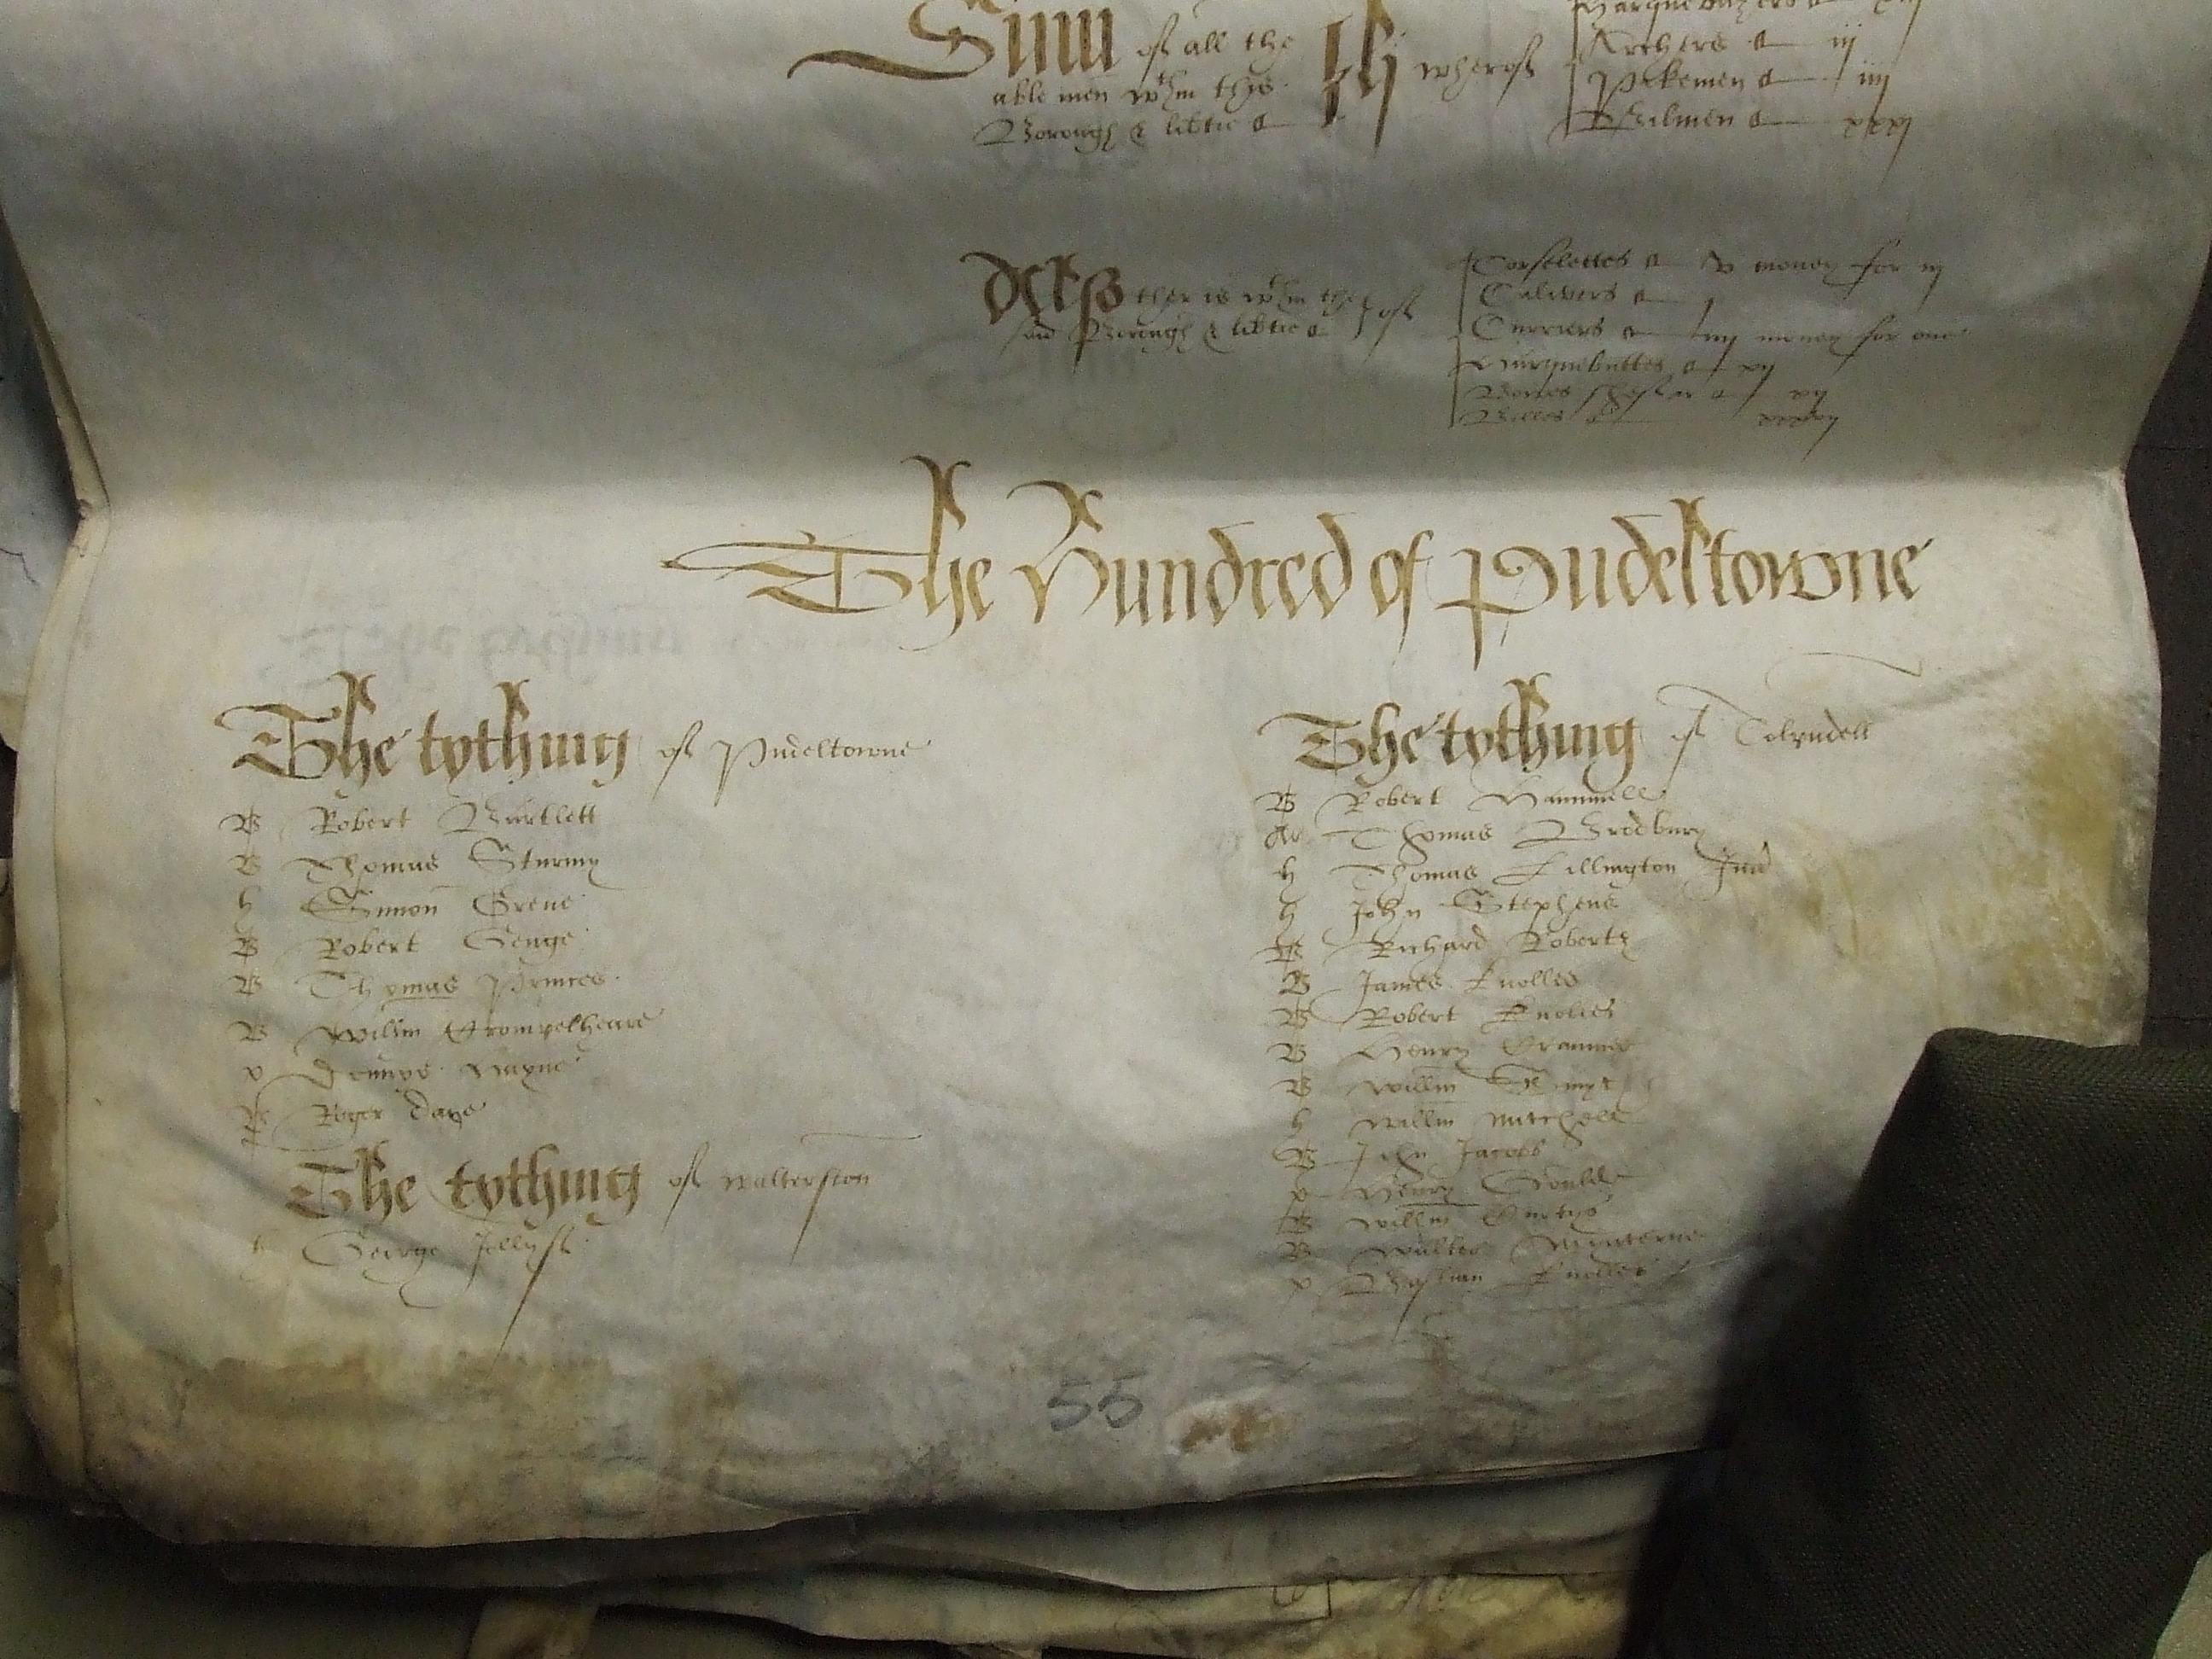 Sum of all the
able men wthin thys
Borough & libtie
lij wherof
Harquebuzers
Archers iij
Pikemen iiij
Bilmen xxxj
ther is wthin the
said Borough & libtie of
Corselettes money for iij
Calivers j
Curriers iiij money for one
Harquebuttes xij
Bowes sheffer xij
Billes
The Hundred of Pudeltowne
The tythting of Pudeltowne
B Robert Bartlett
B Thomas Sturmy
h Simon Grene
B Robert Genge
B Thomas Princes
B Willm Trompelheare
p Dennys Hayne
B Roger Daye
The tythting of Walterston
h George Jollyff
The tythting of
B Robert Hammell
Ar Thomas Bredbury
h Thomas Lillington Jun
h John Stephens
B Richard Roberts
B James Knolles
B Robert Knolles
B Henry
B Willm
h Willm Mitchell
B John Jacobb
p Henry Goulde
B Willm Curtys
B Walter Mynterne
p Bastian Knolles
55